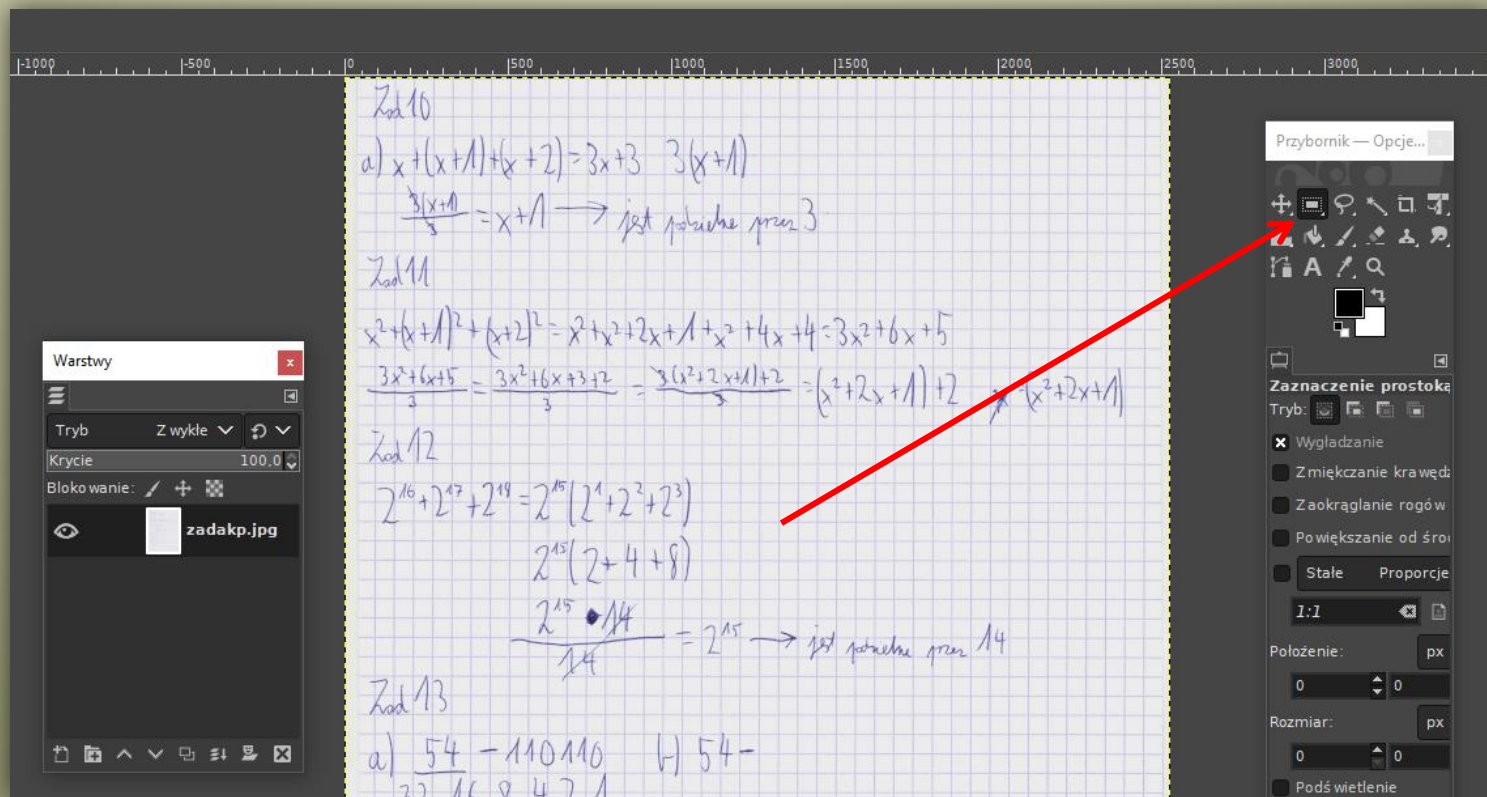 |-1000 |-500 |0 |500 |1000 |1500 |2000 |2500 |3000
Zad 10
a) x+(x+1)+(x+2)=3x+3 3(x+1)
3(x+1)/3 = x+1 → jest podzielne przez 3
Zad 11
x²+(x+1)²+(x+2)² = x²+x²+2x+1+x²+4x+4=3x²+6x+5
3x²+6x+5/3 = 3x²+6x+3+2/3 = 3(x²+2x+1)+2/3 =(x²+2x+1)+2 (x²+2x+1)
Zad 12
2¹⁶+2¹⁷+2¹⁸=2¹⁵(2¹+2²+2³)
2¹⁵(2+4+8)
2¹⁵ • 14/14 = 2¹⁵ → jest podzielne przez 14
Zad 13
a) 54 - 110110 b) 54-
32 16 8 4 2 1
Warstwy
x
Tryb Zwykłe
Krycie 100,0
Blokowanie:
zadakp.jpg
Przybornik — Opcje...
A
Zaznaczenie prostoką
Tryb:
Wygładzanie
Zmiękczanie krawędz
Zaokrąglanie rogów
Powiększanie od środ
Stałe Proporcje
1:1
Położenie: px
0 0
Rozmiar: px
0 0
Podświetlenie